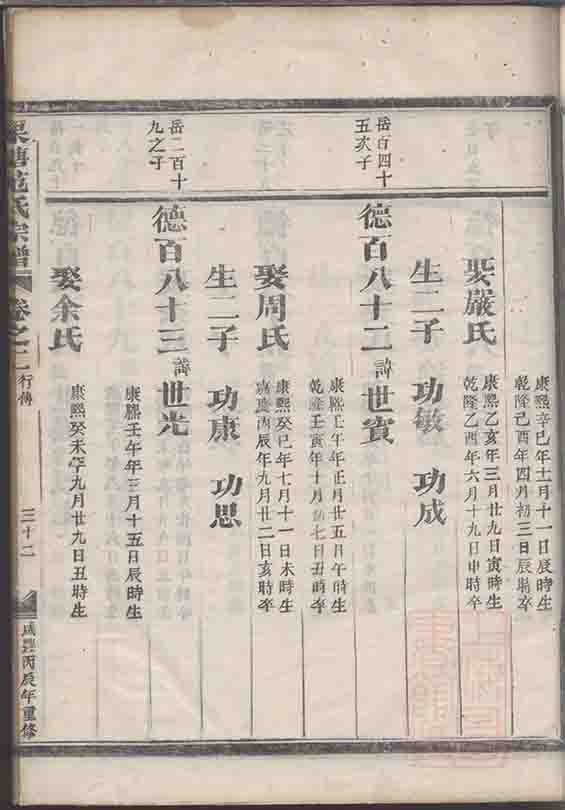 康熙辛巳年十一月十一日辰時生
乾隆己酉年四月初三日辰時卒
娶嚴氏
康熙乙亥年三月廿九日寅時生
乾隆乙酉年六月十九日申時卒
生二子 功敏 功成
岳百四十五次子
德百八十二 諱世賓
康熙壬午年正月廿五月午時生
乾隆壬寅年十月初七日丑時卒
娶周氏
康熙癸巳年七月十一日未時生
嘉慶丙辰年九月廿二日亥時卒
生二子 功康 功思
岳二百十九之子
德百八十三 諱世光
康熙壬午年三月十五日辰時生
娶余氏
康熙癸未年九月廿九日丑時生
范氏宗譜 卷之二 行傳 三十二 咸豐丙辰年重修